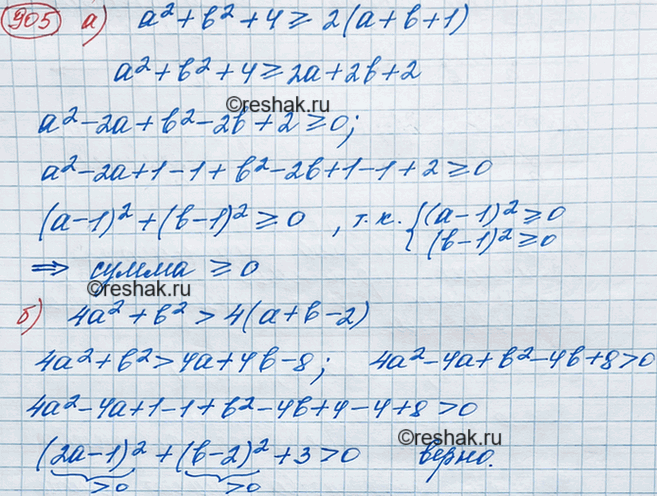 905 а) a² + b² + 4 ≥ 2(a + b + 1)
a² + b² + 4 ≥ 2a + 2b + 2
©reshak.ru
a² - 2a + b² - 2b + 2 ≥ 0;
a² - 2a + 1 - 1 + b² - 2b + 1 - 1 + 2 ≥ 0
(a - 1)² + (b - 1)² ≥ 0 , т.к. { (a - 1)² ≥ 0
(b - 1)² ≥ 0
⇒ сумма ≥ 0
©reshak.ru
б) 4a² + b² > 4(a + b - 2)
4a² + b² > 4a + 4b - 8; 4a² - 4a + b² - 4b + 8 > 0
4a² - 4a + 1 - 1 + b² - 4b + 4 - 4 + 8 > 0
©reshak.ru
(2a - 1)² + (b - 2)² + 3 > 0 верно.
>0 >0